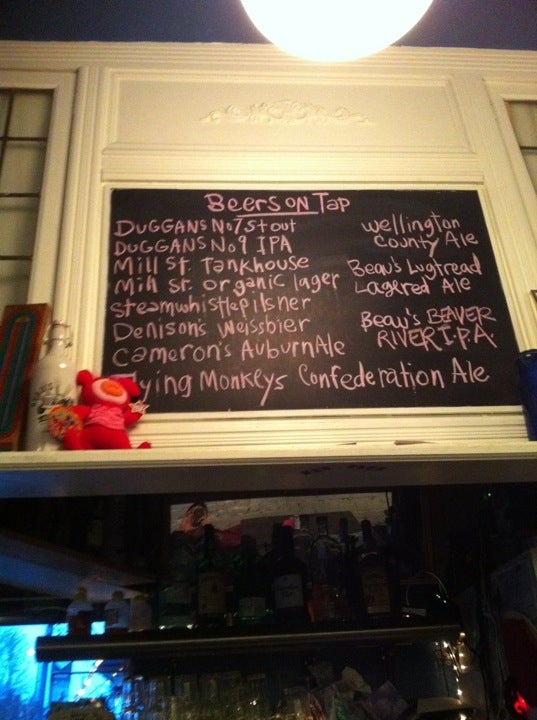 Beers on Tap
Duggans No7 Stout
Duggans No9 IPA
Mill St. Tankhouse
Mill St. organic lager
Steamwhistle pilsner
Denison's Weissbier
Cameron's Auburn Ale
Flying Monkeys Confederation Ale
Wellington
County Ale
Beau's Lugtread
Lagered Ale
Beau's BEAVER
RIVER I.P.A